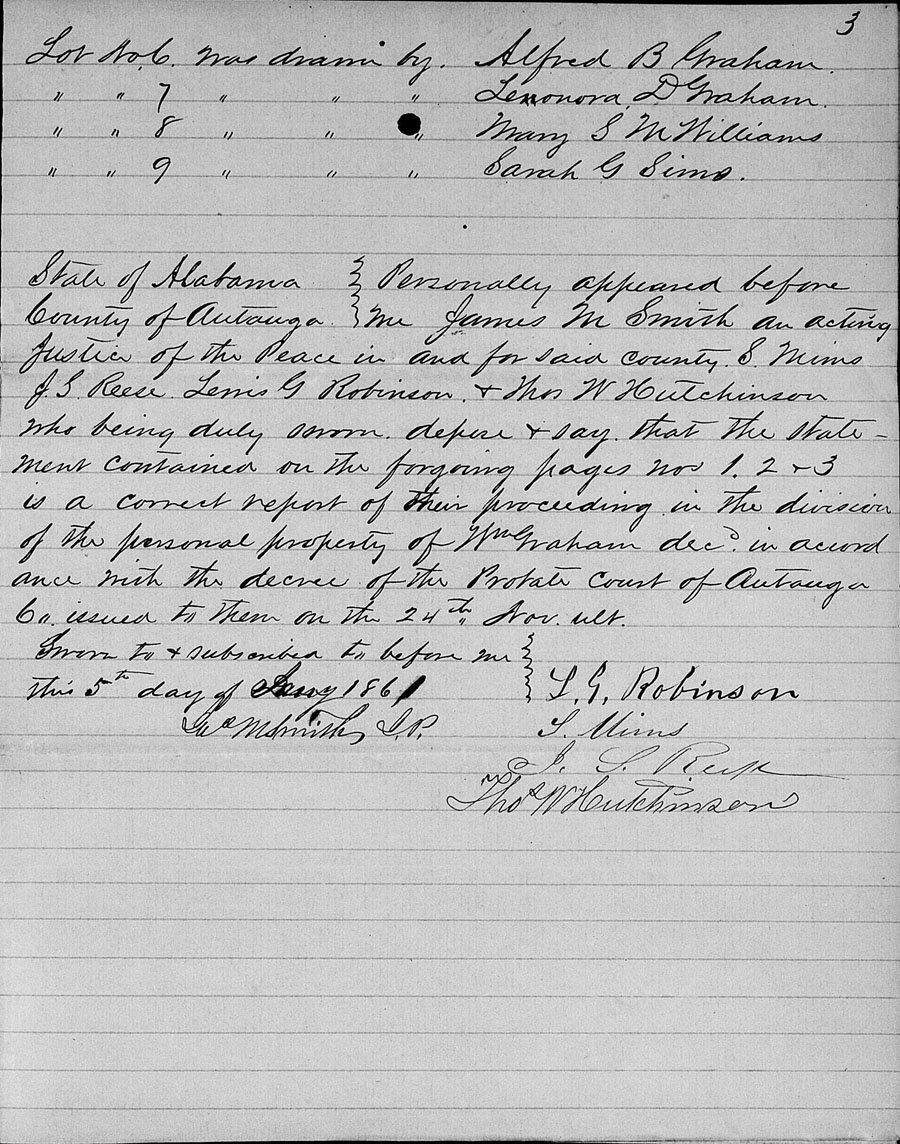 3
Lot No 6. was drawn by. Alfred B Graham.
" " 7 " " " Lenonora D Graham.
" " 8 " " " Mary S McWilliams
" " 9 " " " Sarah G Sims.
State of Alabama } Personally appeared before
County of Autauga. } me James M Smith an acting
Justice of the Peace in and for said county. S. Mims
J. S. Reese. Lewis G Robinson. & Thos W Hutchinson
who being duly sworn. depose & say. that the state-
ment contained on the forgoing pages nos 1. 2 & 3
is a correct report of their proceeding in the division
of the personal property of Wm Graham decd. in accord
ance with the decree of the Probate Court of Autauga
Co. issued to them on the 24th Nov. ult.
Sworn to & subscribed to before me }
this 5th day of Jany 1861 L. G. Robinson
Jas M Smith J.P. S. Mims
J. S. Reese
Thos W Hutchinson